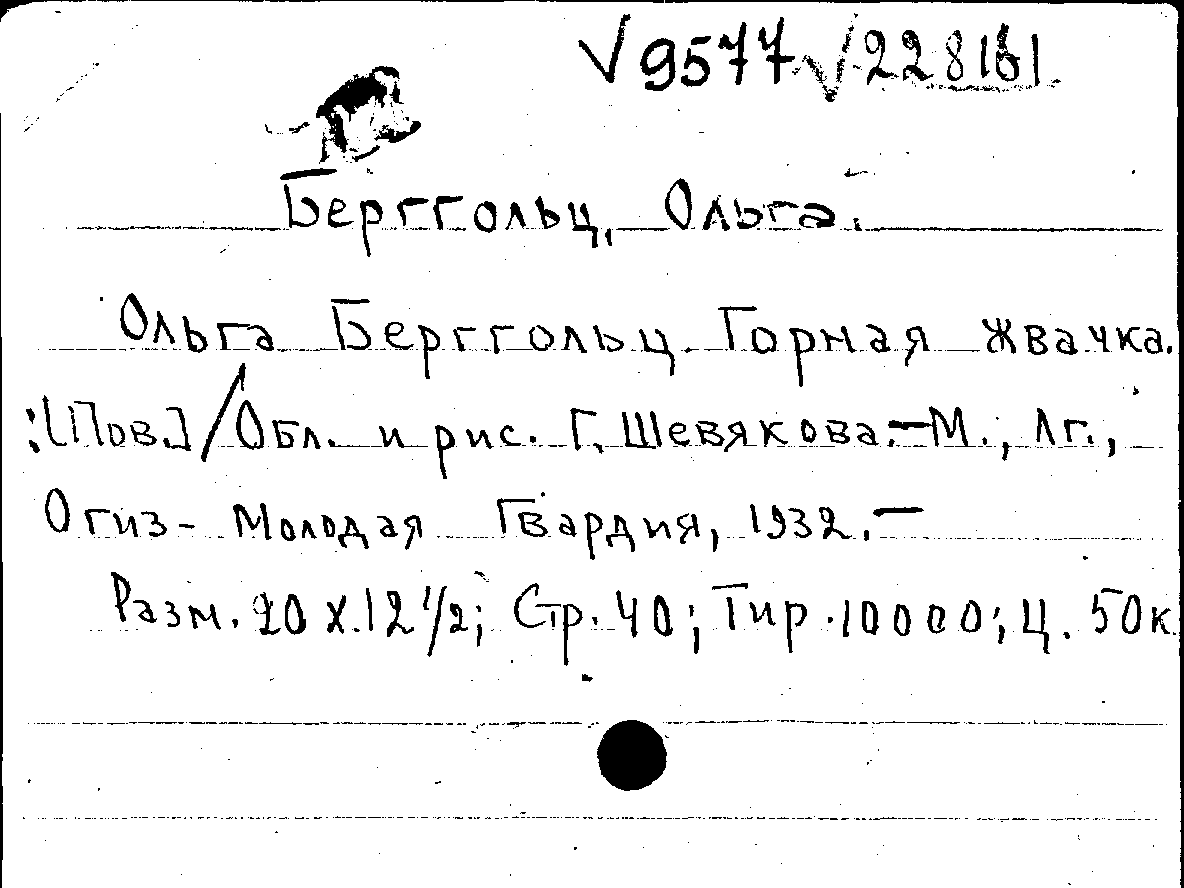 √9577 √228161
Берггольц, Ольга.
Ольга Берггольц. Горная жвачка.
:[Пов.] / Обл. и рис. Г. Шевякова.— М., Лг.,
Огиз - Молодая Гвардия, 1932.—
Разм. 20 х 12 1/2; Стр. 40; Тир. 10000; Ц. 50к